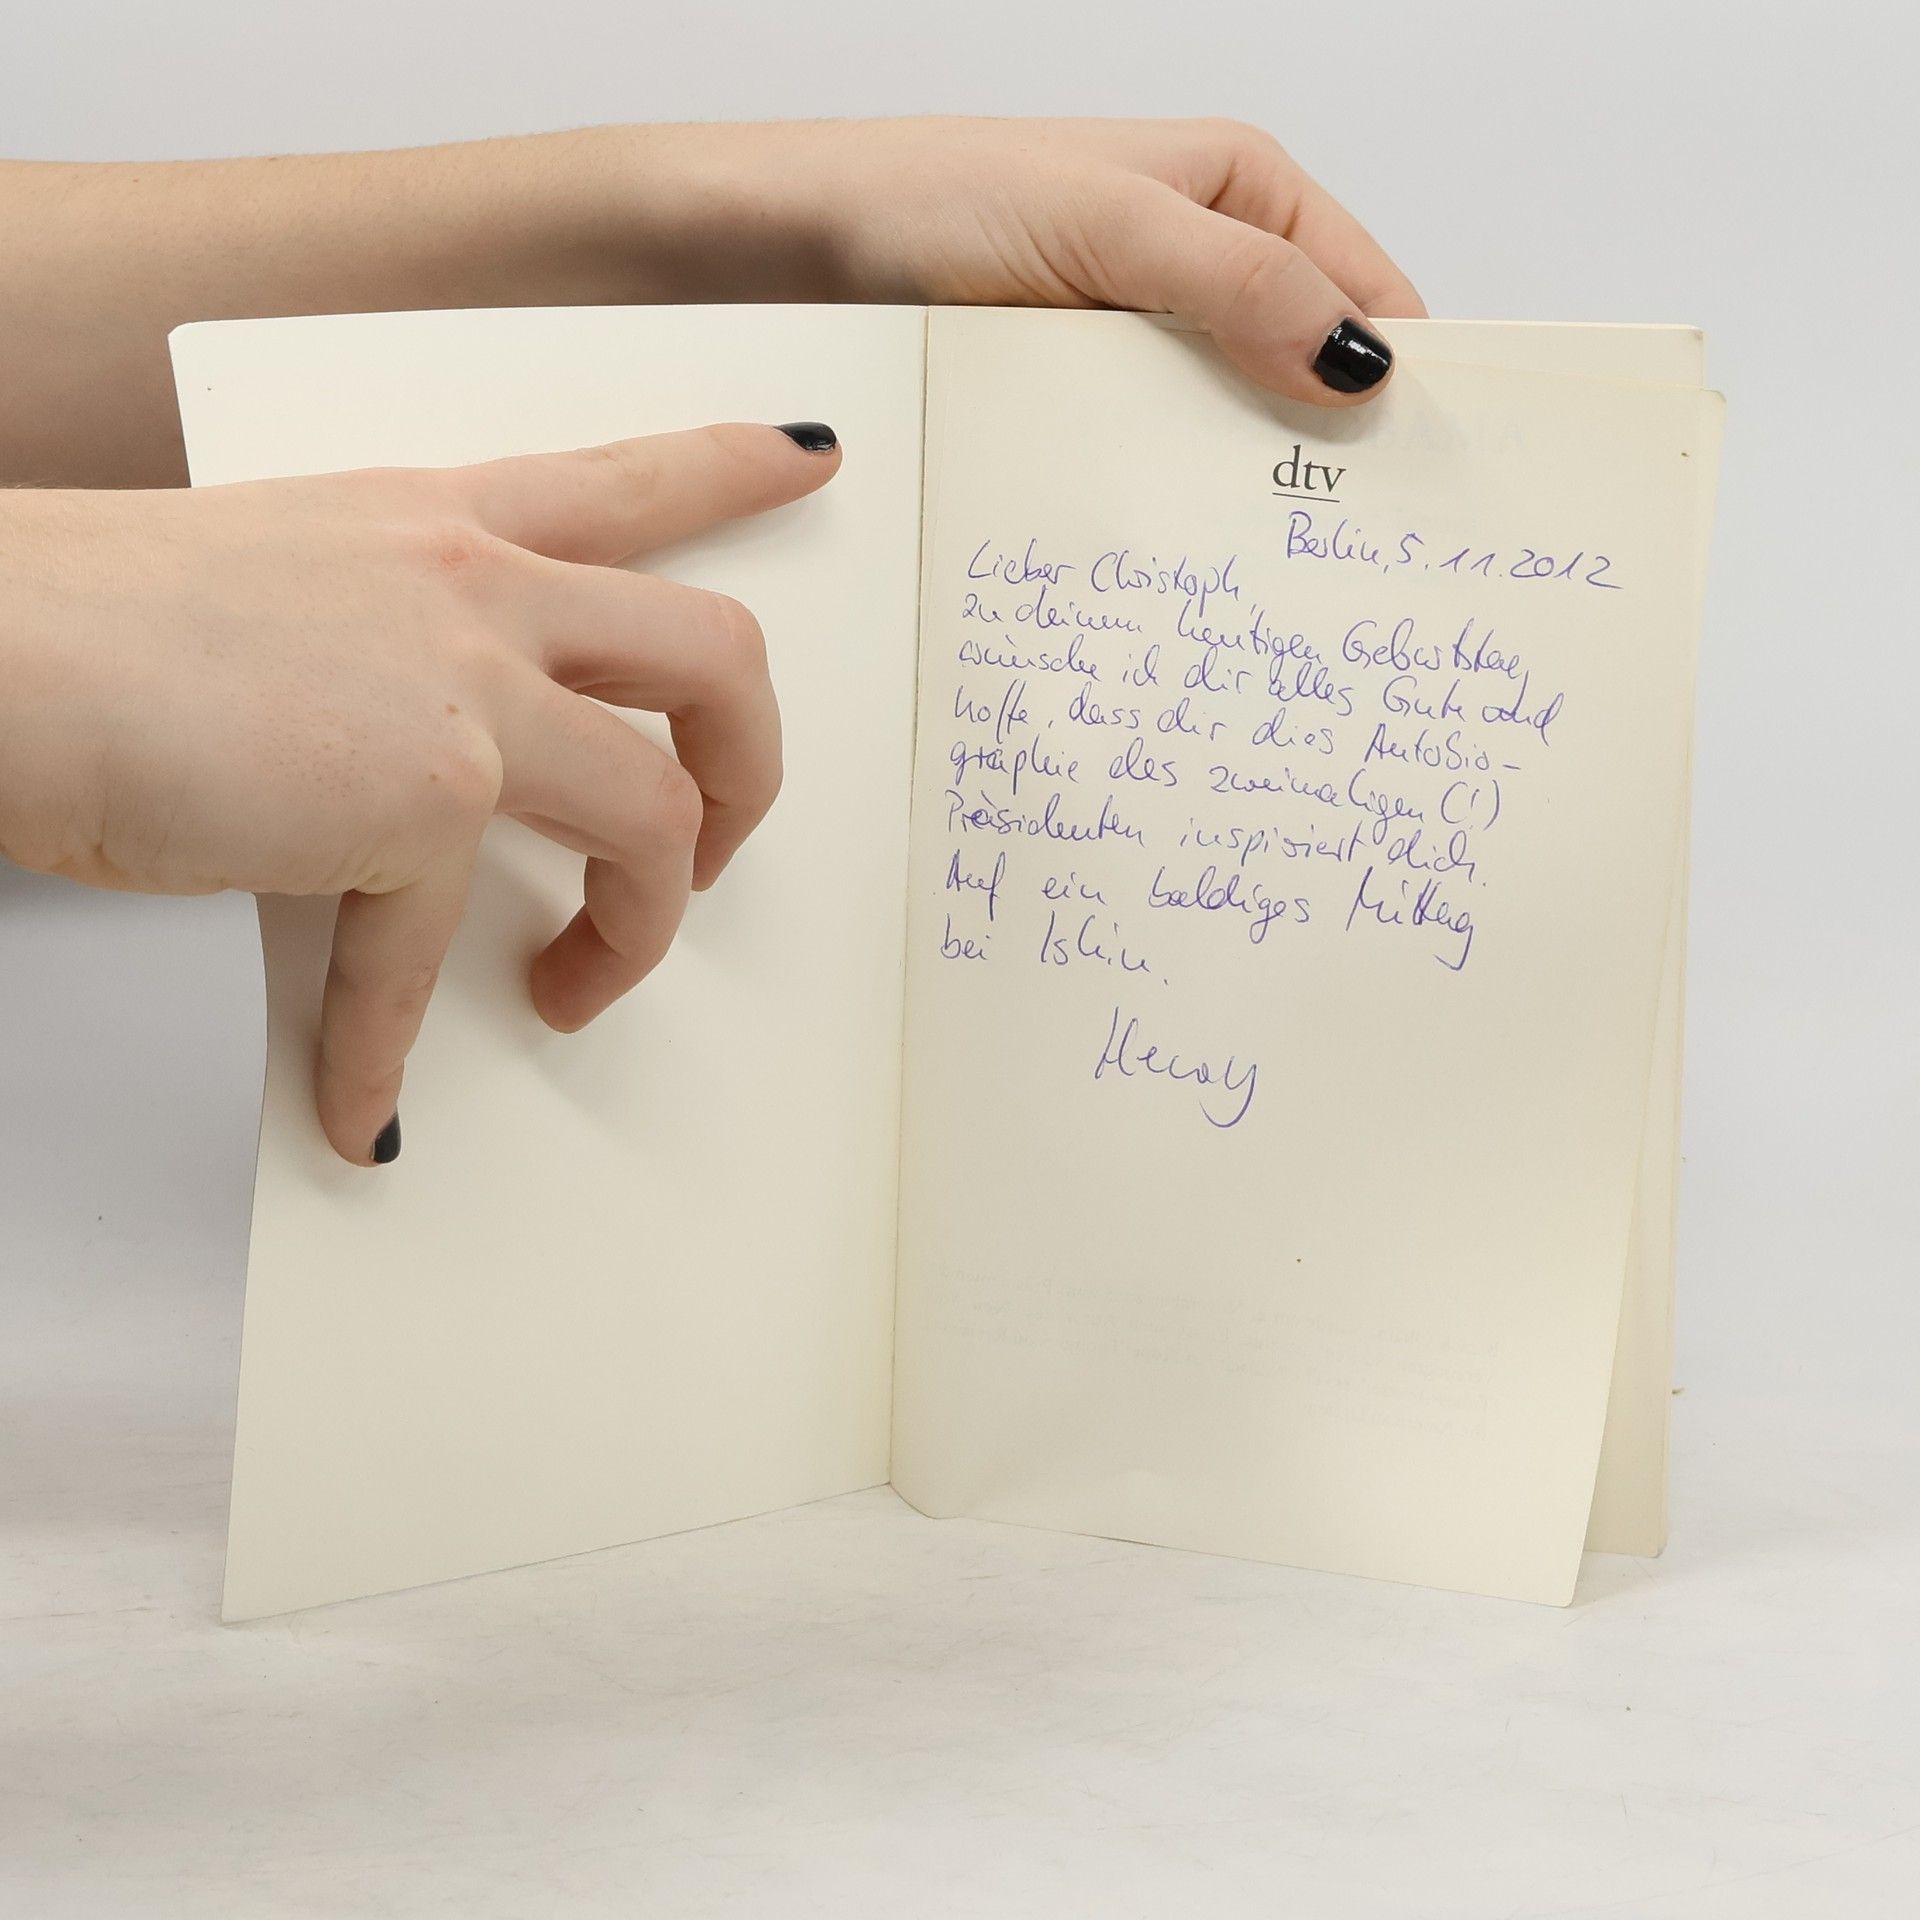 dtv
Berlin, 5.11.2012
Lieber Christoph,
zu deinem heutigen Geburtstag
wünsche ich dir alles Gute und
hoffe, dass dir dies Autobio-
graphie des zweimaligen (!)
Präsidenten inspiriert dich.
Auf ein baldiges Mittag
bei Ishin.